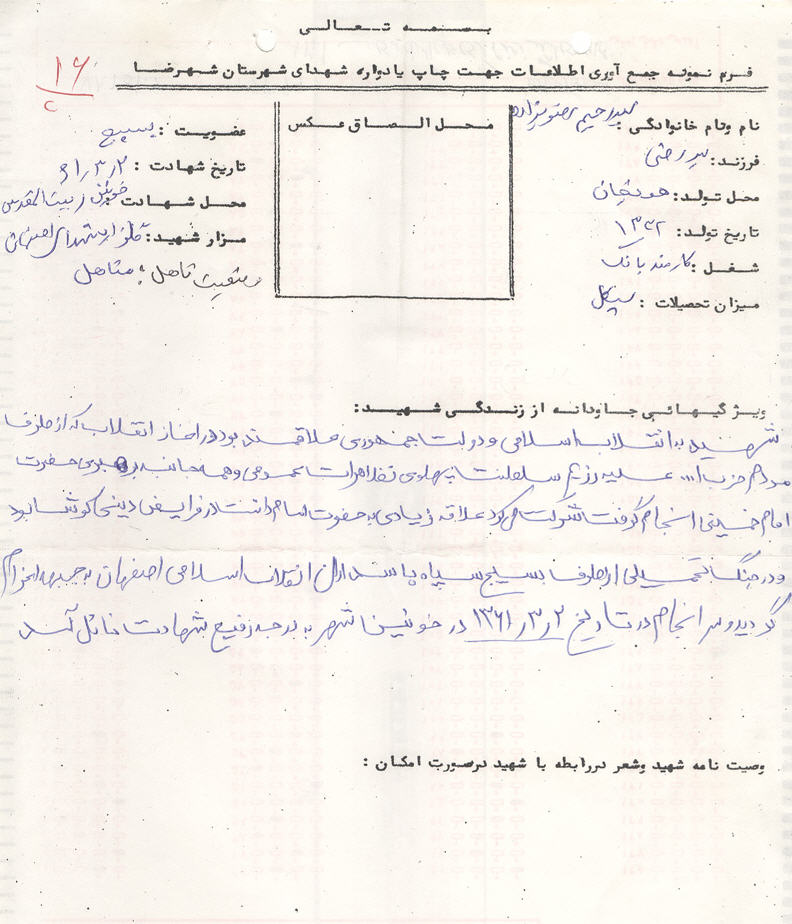 بسمه تعالی
۱۶
فرم نمونه جمع آوری اطلاعات جهت چاپ یادواره شهدای شهرستان شهرضا
نام ونام خانوادگی: سید رحیم
فرزند: سید رضی
محل تولد: هونجان
تاریخ تولد: ۱۳۳۲
شغل: کارمند بانک
میزان تحصیلات: سیکل
محل الصاق عکس
عضویت: بسیج
تاریخ شهادت: ۶۱٫۳٫۲
محل شهادت: خونین بیت المقدس
مزار شهید: گلزار شهدای اصفهان
وضعیت تاهل: متاهل
ویژگیهائی جاودانه از زندگی شهید:
شهید به انقلاب اسلامی و دولت جمهوری علاقمند بود در آغاز انقلاب که از طرف
مردم حزب ا... علیه رژیم سلطنت پهلوی تظاهرات عمومی و همه جانبه برهبری حضرت
امام خمینی انجام گرفت شرکت می کرد علاقه زیادی به حضرت امام داشت در فرایض دینی کوشا بود
و در جنگ تحمیلی از طرف بسیج سپاه پاسداران انقلاب اسلامی اصفهان به جبهه اعزام
گردید و سرانجام در تاریخ ۱۳۶۱٫۳٫۲ در خونین شهر به درجه رفیع شهادت نائل آمد
وصیت نامه شهید وشعر دررابطه با شهید درصورت امکان :